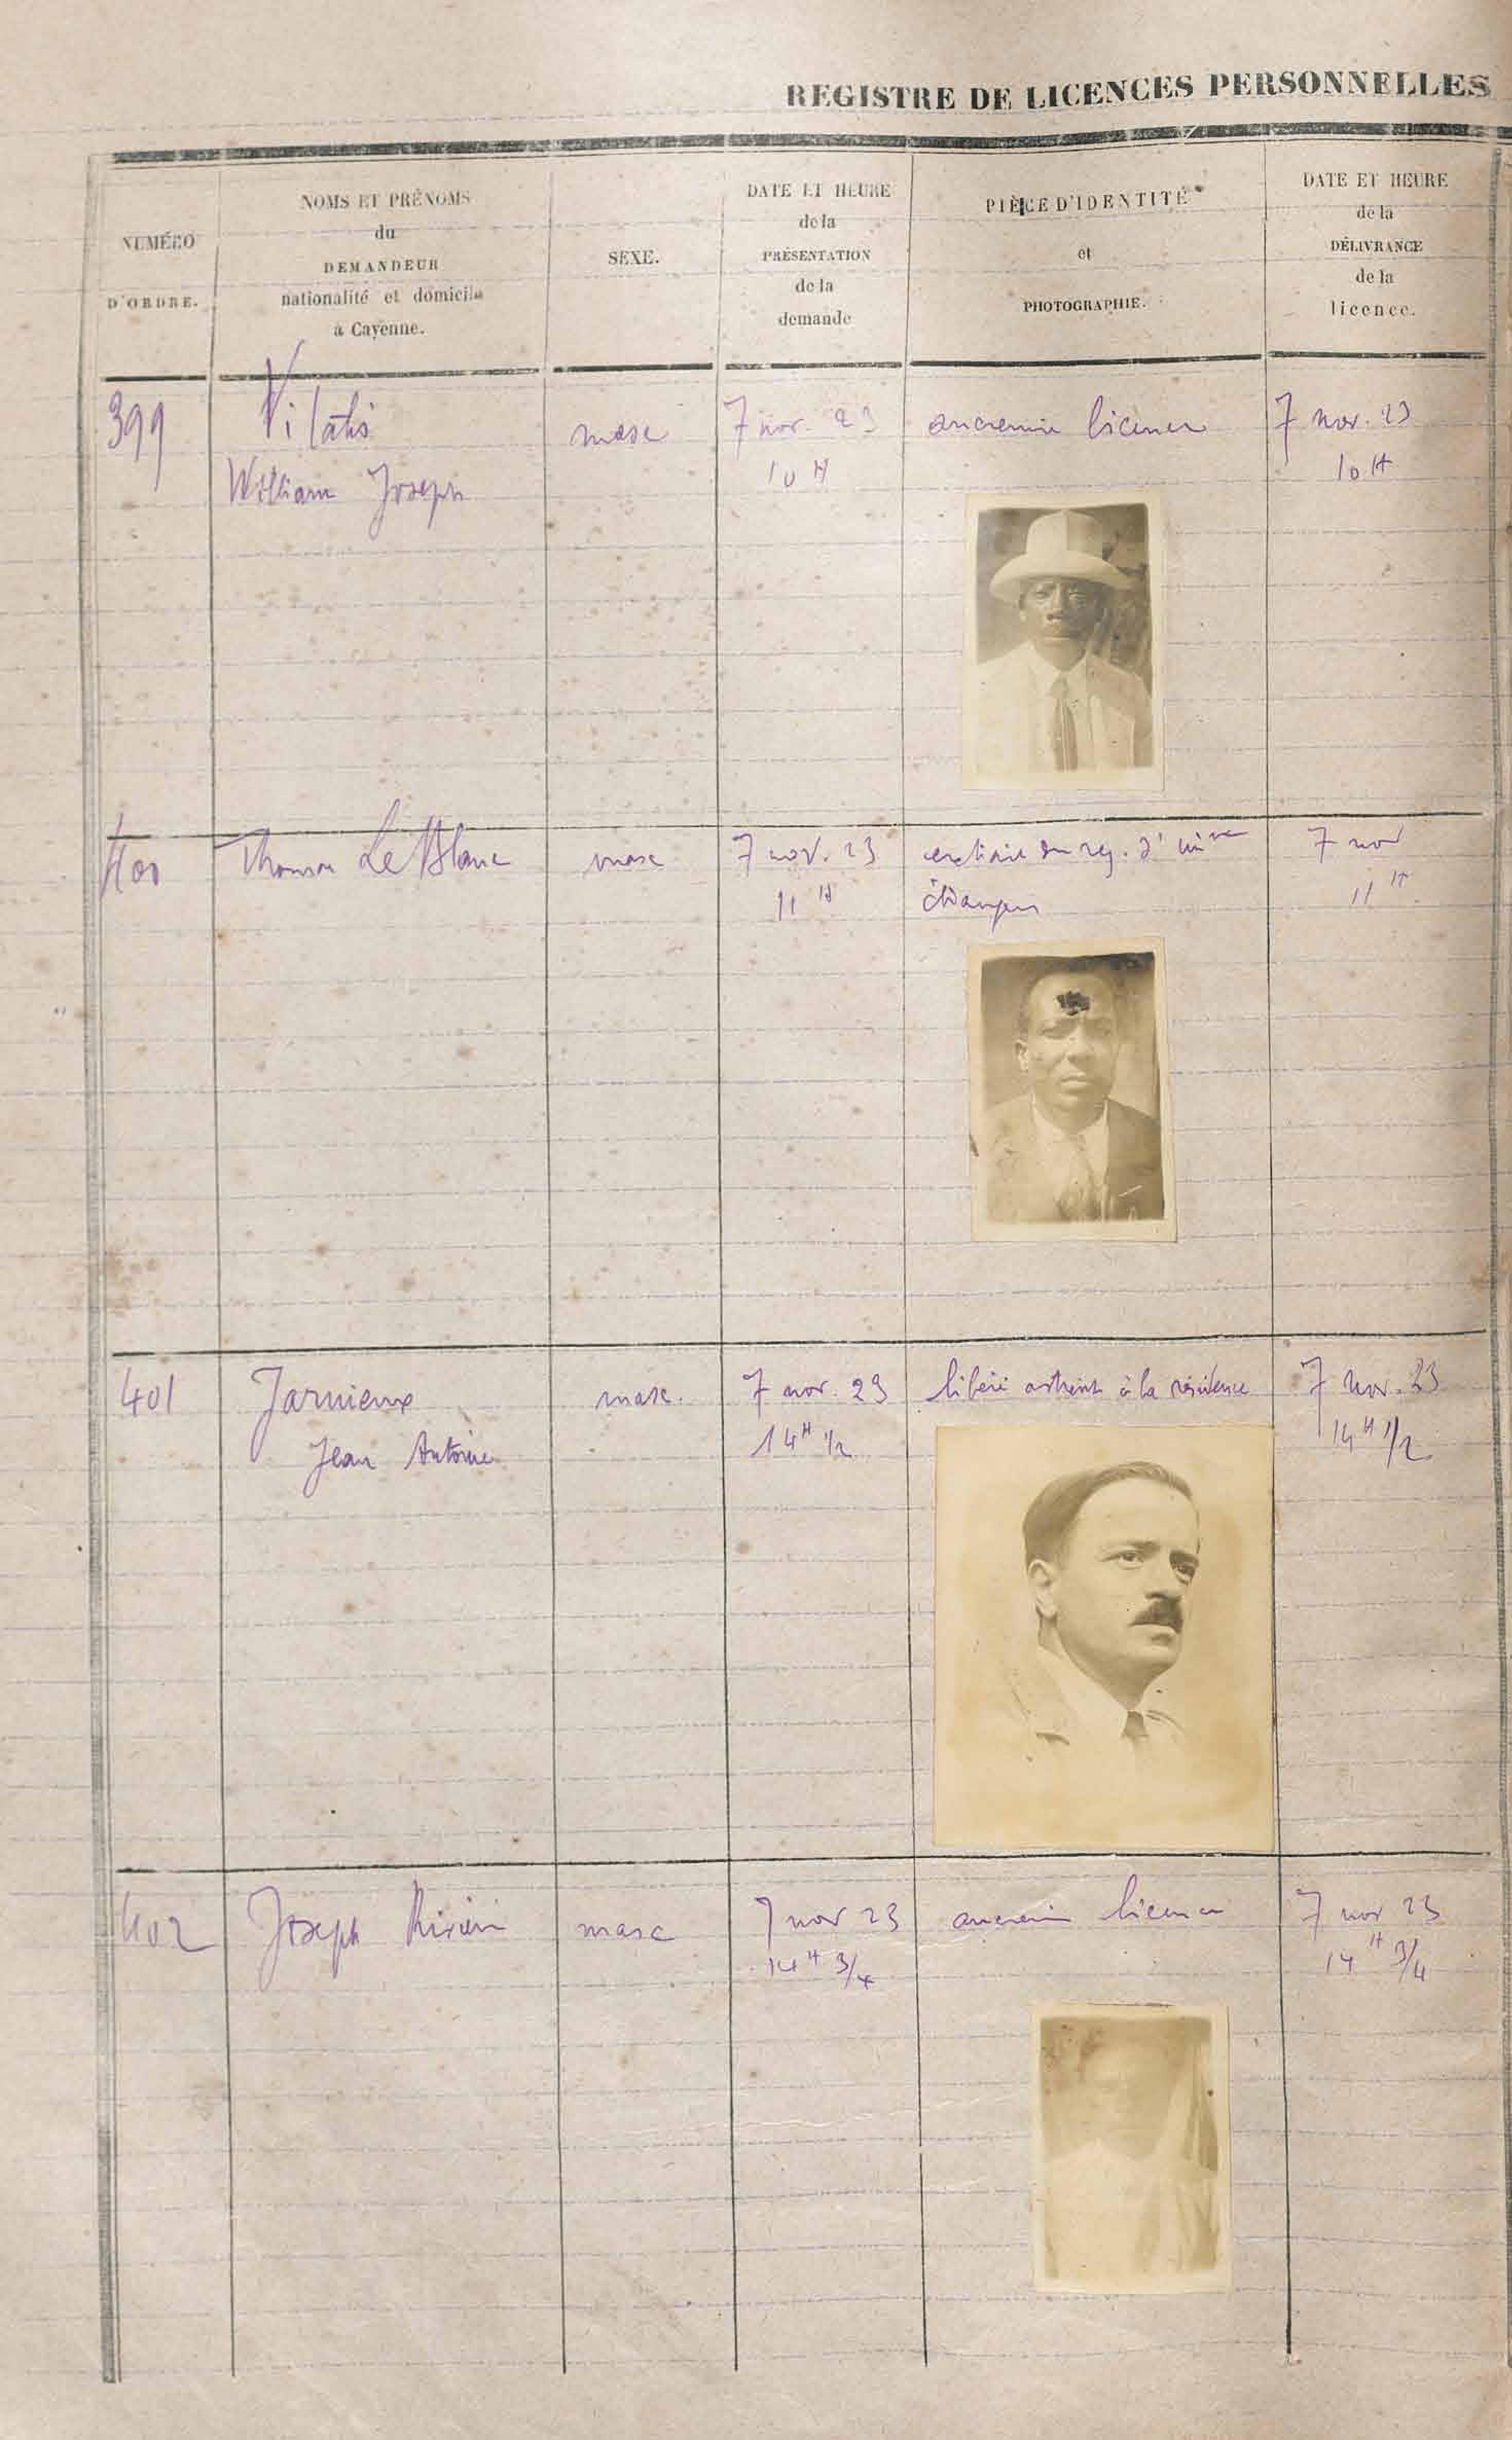 REGISTRE DE LICENCES PERSONNELLES
NUMÉRO
D'ORDRE.
NOMS ET PRÉNOMS
du
DEMANDEUR
nationalité et domicile
à Cayenne.
SEXE.
DATE ET HEURE
de la
PRÉSENTATION
de la
demande
PIÈCE D'IDENTITÉ
et
PHOTOGRAPHIE.
DATE ET HEURE
de la
DÉLIVRANCE
de la
licence.
399
William Joseph
masc
7 nov. 23
10 H
licence
7 nov. 23
10 H
400
Le Blanc
masc
7 nov. 23
11 H
extrait du reg. d'
7 nov
11 H
401
Jarnieux
Jean Antoine
masc.
7 nov. 23
14 H 1/2
libéré astreint à la résidence
7 nov. 23
14 H 1/2
402
Joseph
masc
7 nov 23
14 H 3/4
licence
7 nov 23
14 H 3/4